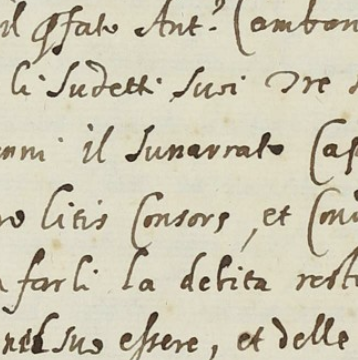 il pfato Ant.º Cambon
li sudetti suoi Tre
nni il sunarrato Cas
ro litis Consors, et Con
farli la debita rest
nel suo essere, et delle